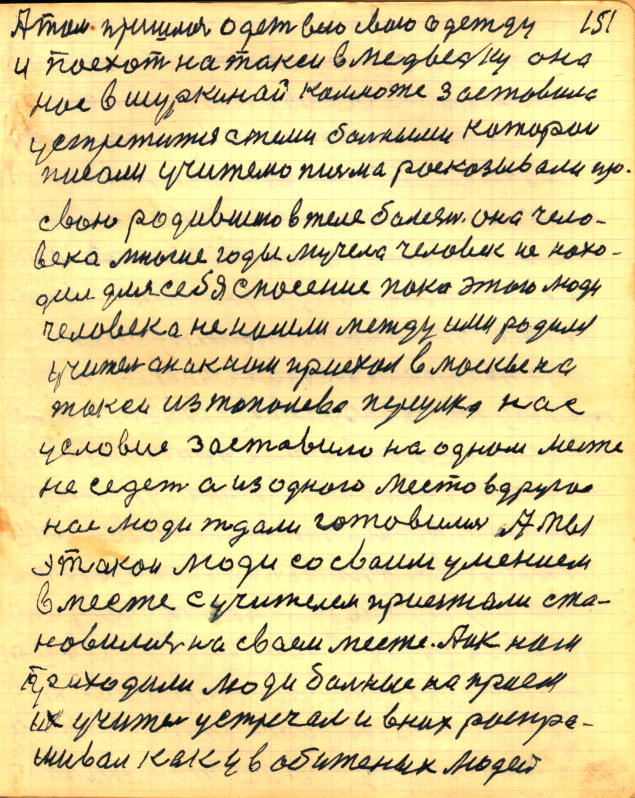 А там пришлоя одет всю свою одежду 151
и поехат на такси в медведку она
нас в шуркинай комноте заставила
устретится с теми болными которои
писали учителю писма росказывали про.
свою родившию в теле болезн. она чело-
века многие годы мучела человек не нахо-
дил для себя спосение пока этого люди
человека не ношли между ими родился
учител он к ним приехол в москве на
такси из тополева переулка нас
условие заставило на одном месте
не седет а из одного место в другое
нас люди ждали готовилися А мы
этакои люди со своим умением
вместе с учителем приезжали ста-
новилися на своем месте. А к нам
приходили люди болные на прием
их учител устречал и в них роспра-
шивал как у в обиженых людей